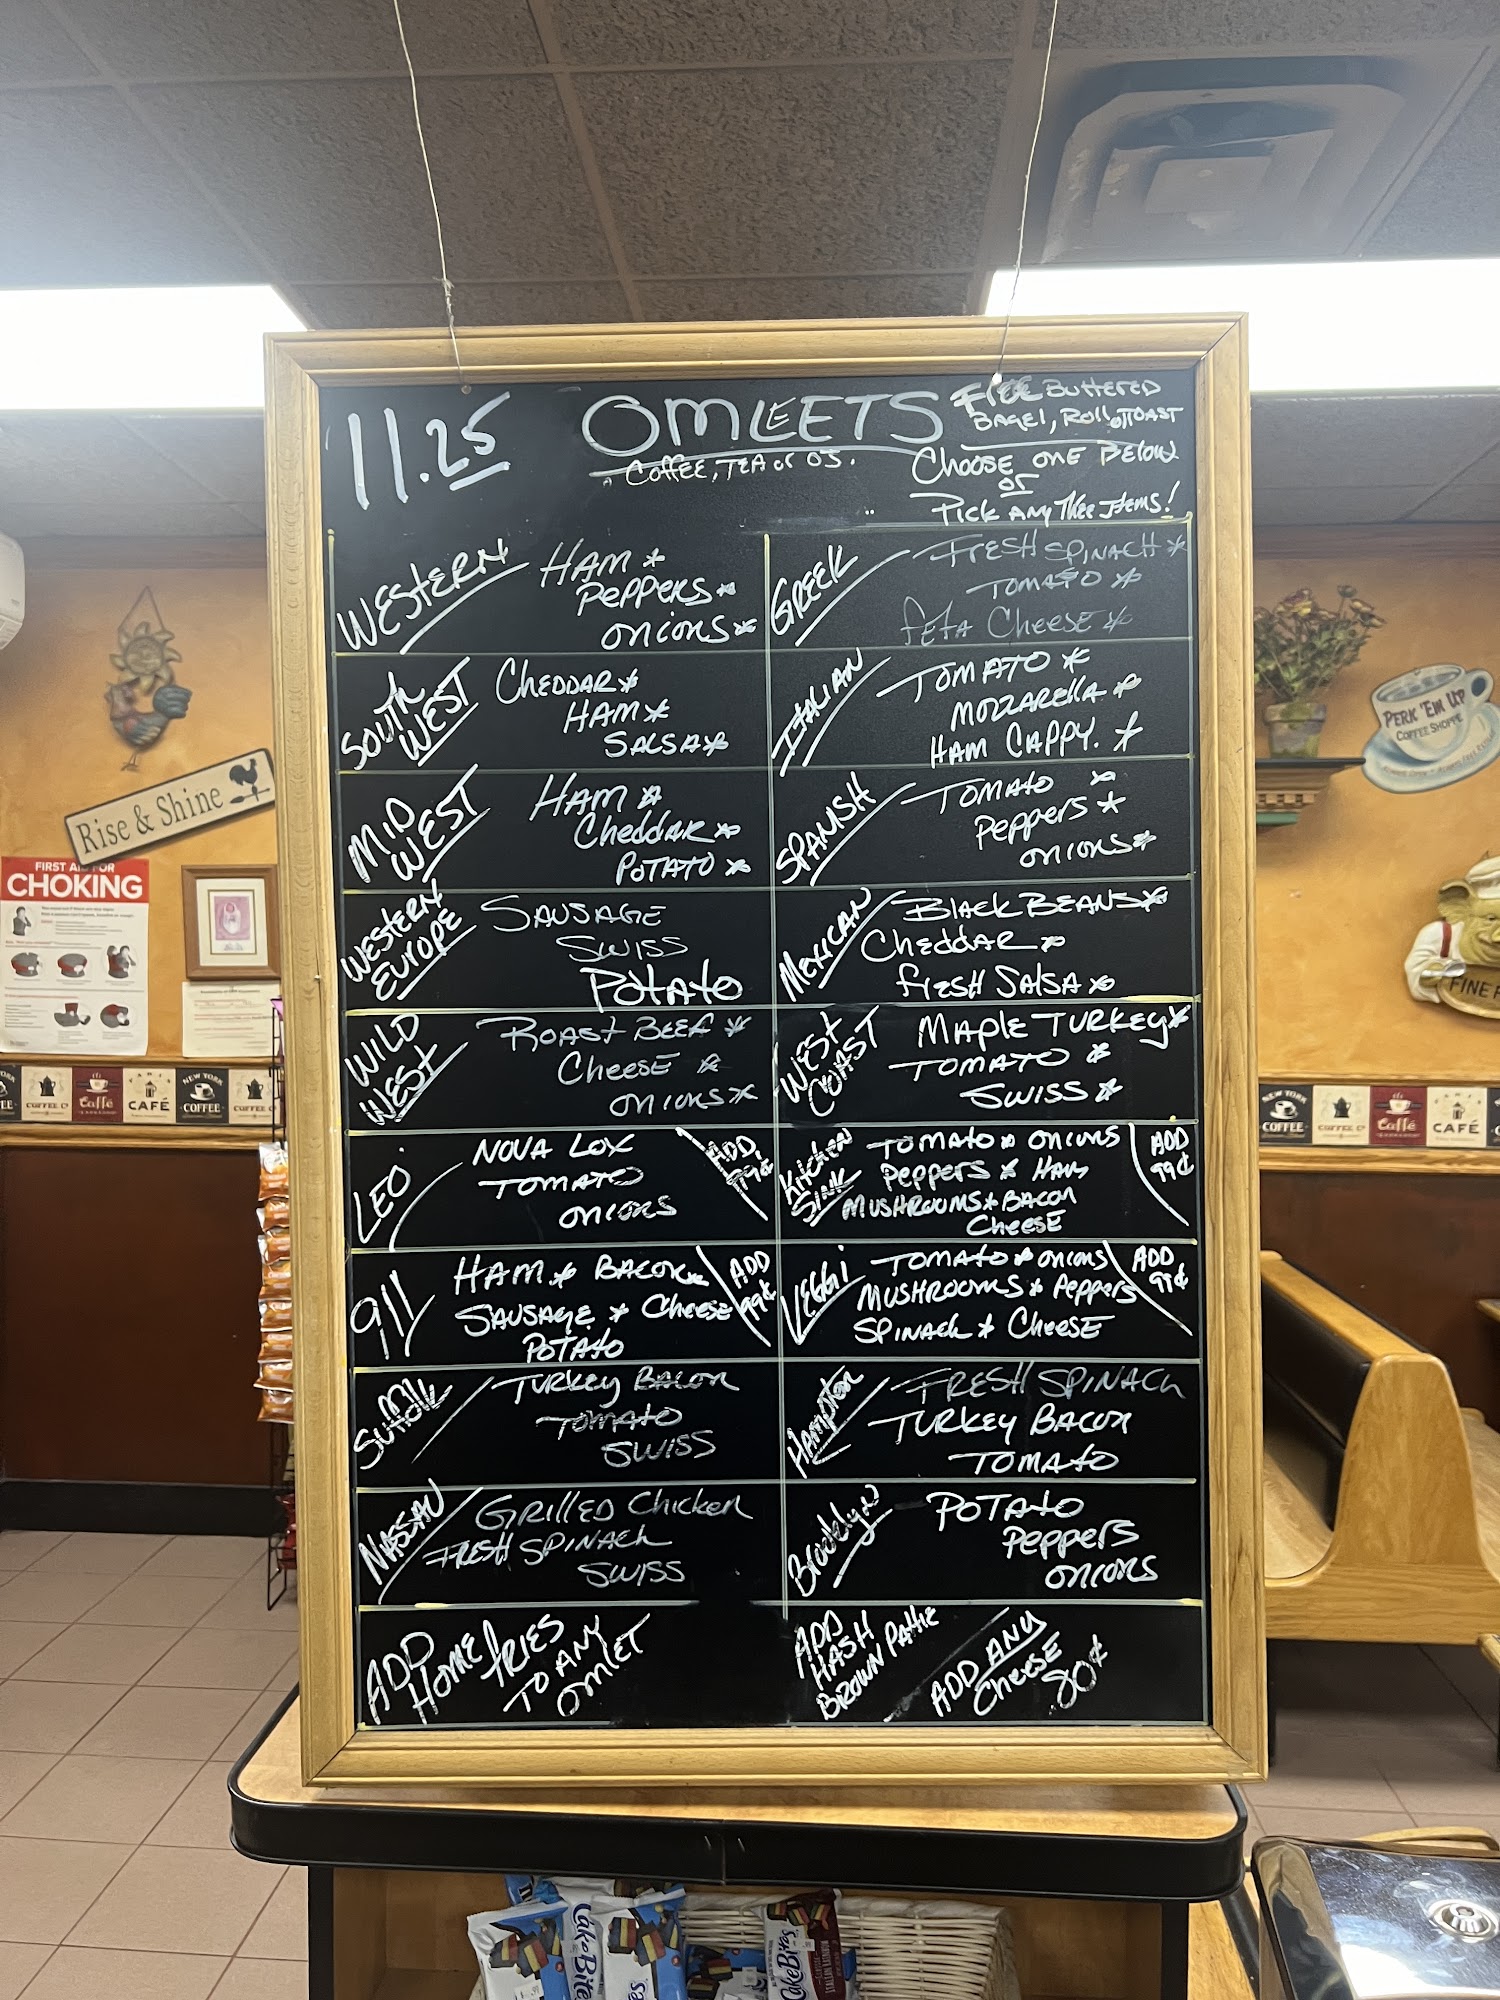 11.25
OMLEETS
Coffee, TEA or OJ.
FREE BUTTERED
BAGEL, ROLL or TOAST
CHOOSE ONE BELOW
or
PICK ANY THEE ITEMS!
WESTERN
HAM *
PEPPERS *
ONIONS *
GREEK
FRESH SPINACH *
TOMATO *
FETA CHEESE *
SOUTH
WEST
CHEDDAR *
HAM *
SALSA *
ITALIAN
TOMATO *
MOZZARELLA *
HAM CAPPY. *
MID
WEST
HAM *
Cheddar *
POTATO *
SPANISH
TOMATO *
Peppers *
ONIONS *
WESTERN
EUROPE
SAUSAGE
SWISS
POTATO
MEXICAN
BLACK BEANS *
Cheddar *
FRESH SALSA *
WILD
WEST
ROAST BEEF *
CHEESE *
ONIONS *
WEST
COAST
MAPLE TURKEY *
TOMATO *
SWISS *
LEO
NOVA LOX
TOMATO
ONIONS
ADD
99¢
Kitchen
SINK
TOMATO * ONIONS
Peppers * HAM
MUSHROOMS * BACON
CHEESE
ADD
99¢
911
HAM * BACON
SAUSAGE * CHEESE
POTATO
ADD
99¢
VEGGI
TOMATO * ONIONS
MUSHROOMS * Peppers
SPINACH * CHEESE
ADD
99¢
Suffolk
TURKEY BACON
TOMATO
SWISS
Hampton
FRESH SPINACH
TURKEY BACON
TOMATO
NASSAU
GRILLED Chicken
FRESH SPINACH
SWISS
Brooklyn
POTATO
Peppers
ONIONS
ADD
HOME FRIES
TO ANY
OMLET
ADD
HASH
BROWN PATTIE
ADD ANY
CHEESE
80¢
Rise & Shine
FIRST AID FOR
CHOKING
PERK 'EM UP
COFFEE SHOPPE
FINE F
COFFEE Co
Caffé
PARIS
CAFÉ
NEW YORK
COFFEE
COFFEE
NEW YORK
COFFEE
COFFEE Co
Caffé
PARIS
CAFÉ
CakeBites
CakeBites